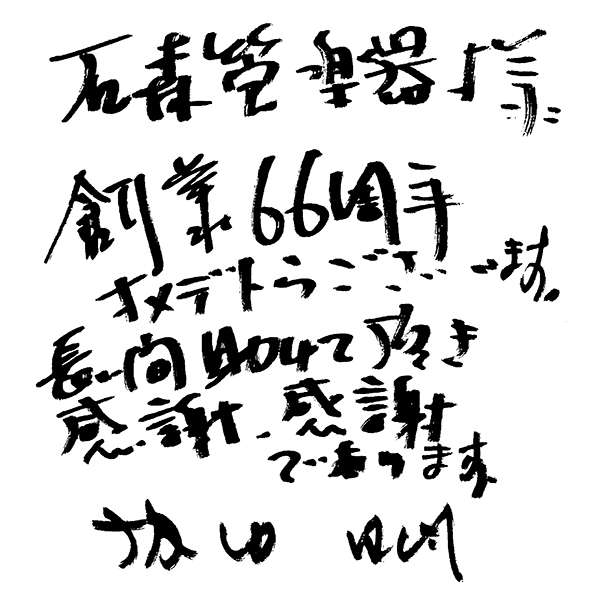 石森管楽器様
創業66周年
オメデトうございます。
長い間助けて頂き
感謝、感謝
であります。
坂田明